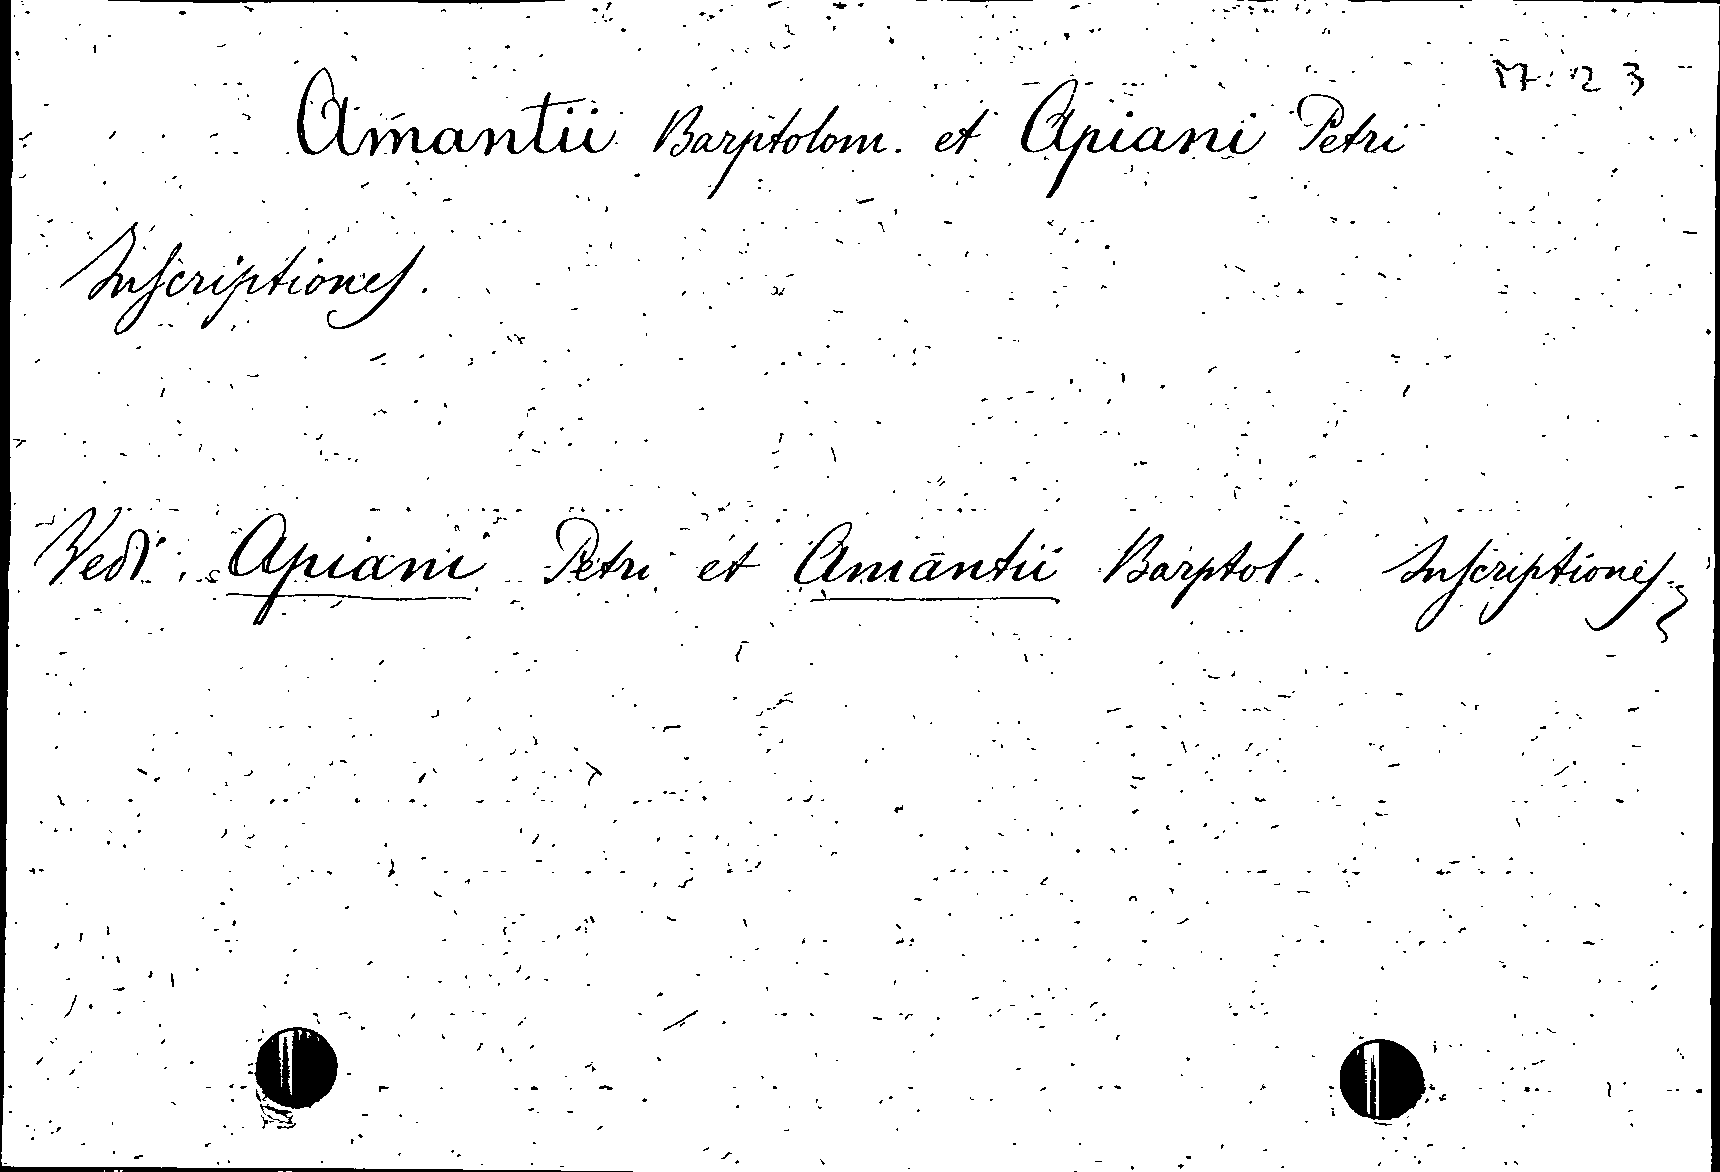 Amantii Barptolom. et Apiani Petri
Inscriptiones.
Vedi: Apiani Petri et Amantii Barptol. Inscriptiones.